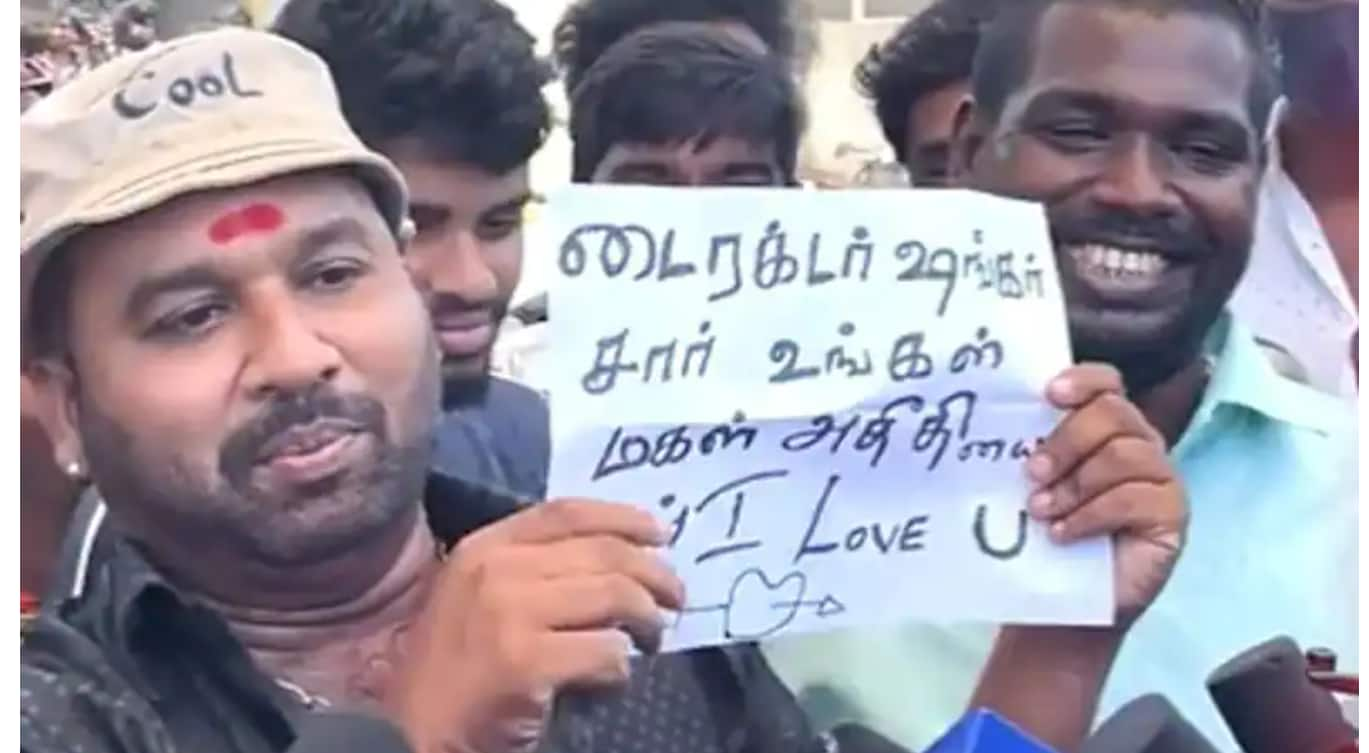 Cool
டைரக்டர் ஷங்கர்
சார் உங்கள்
மகள் அதிதி
I LOVE U